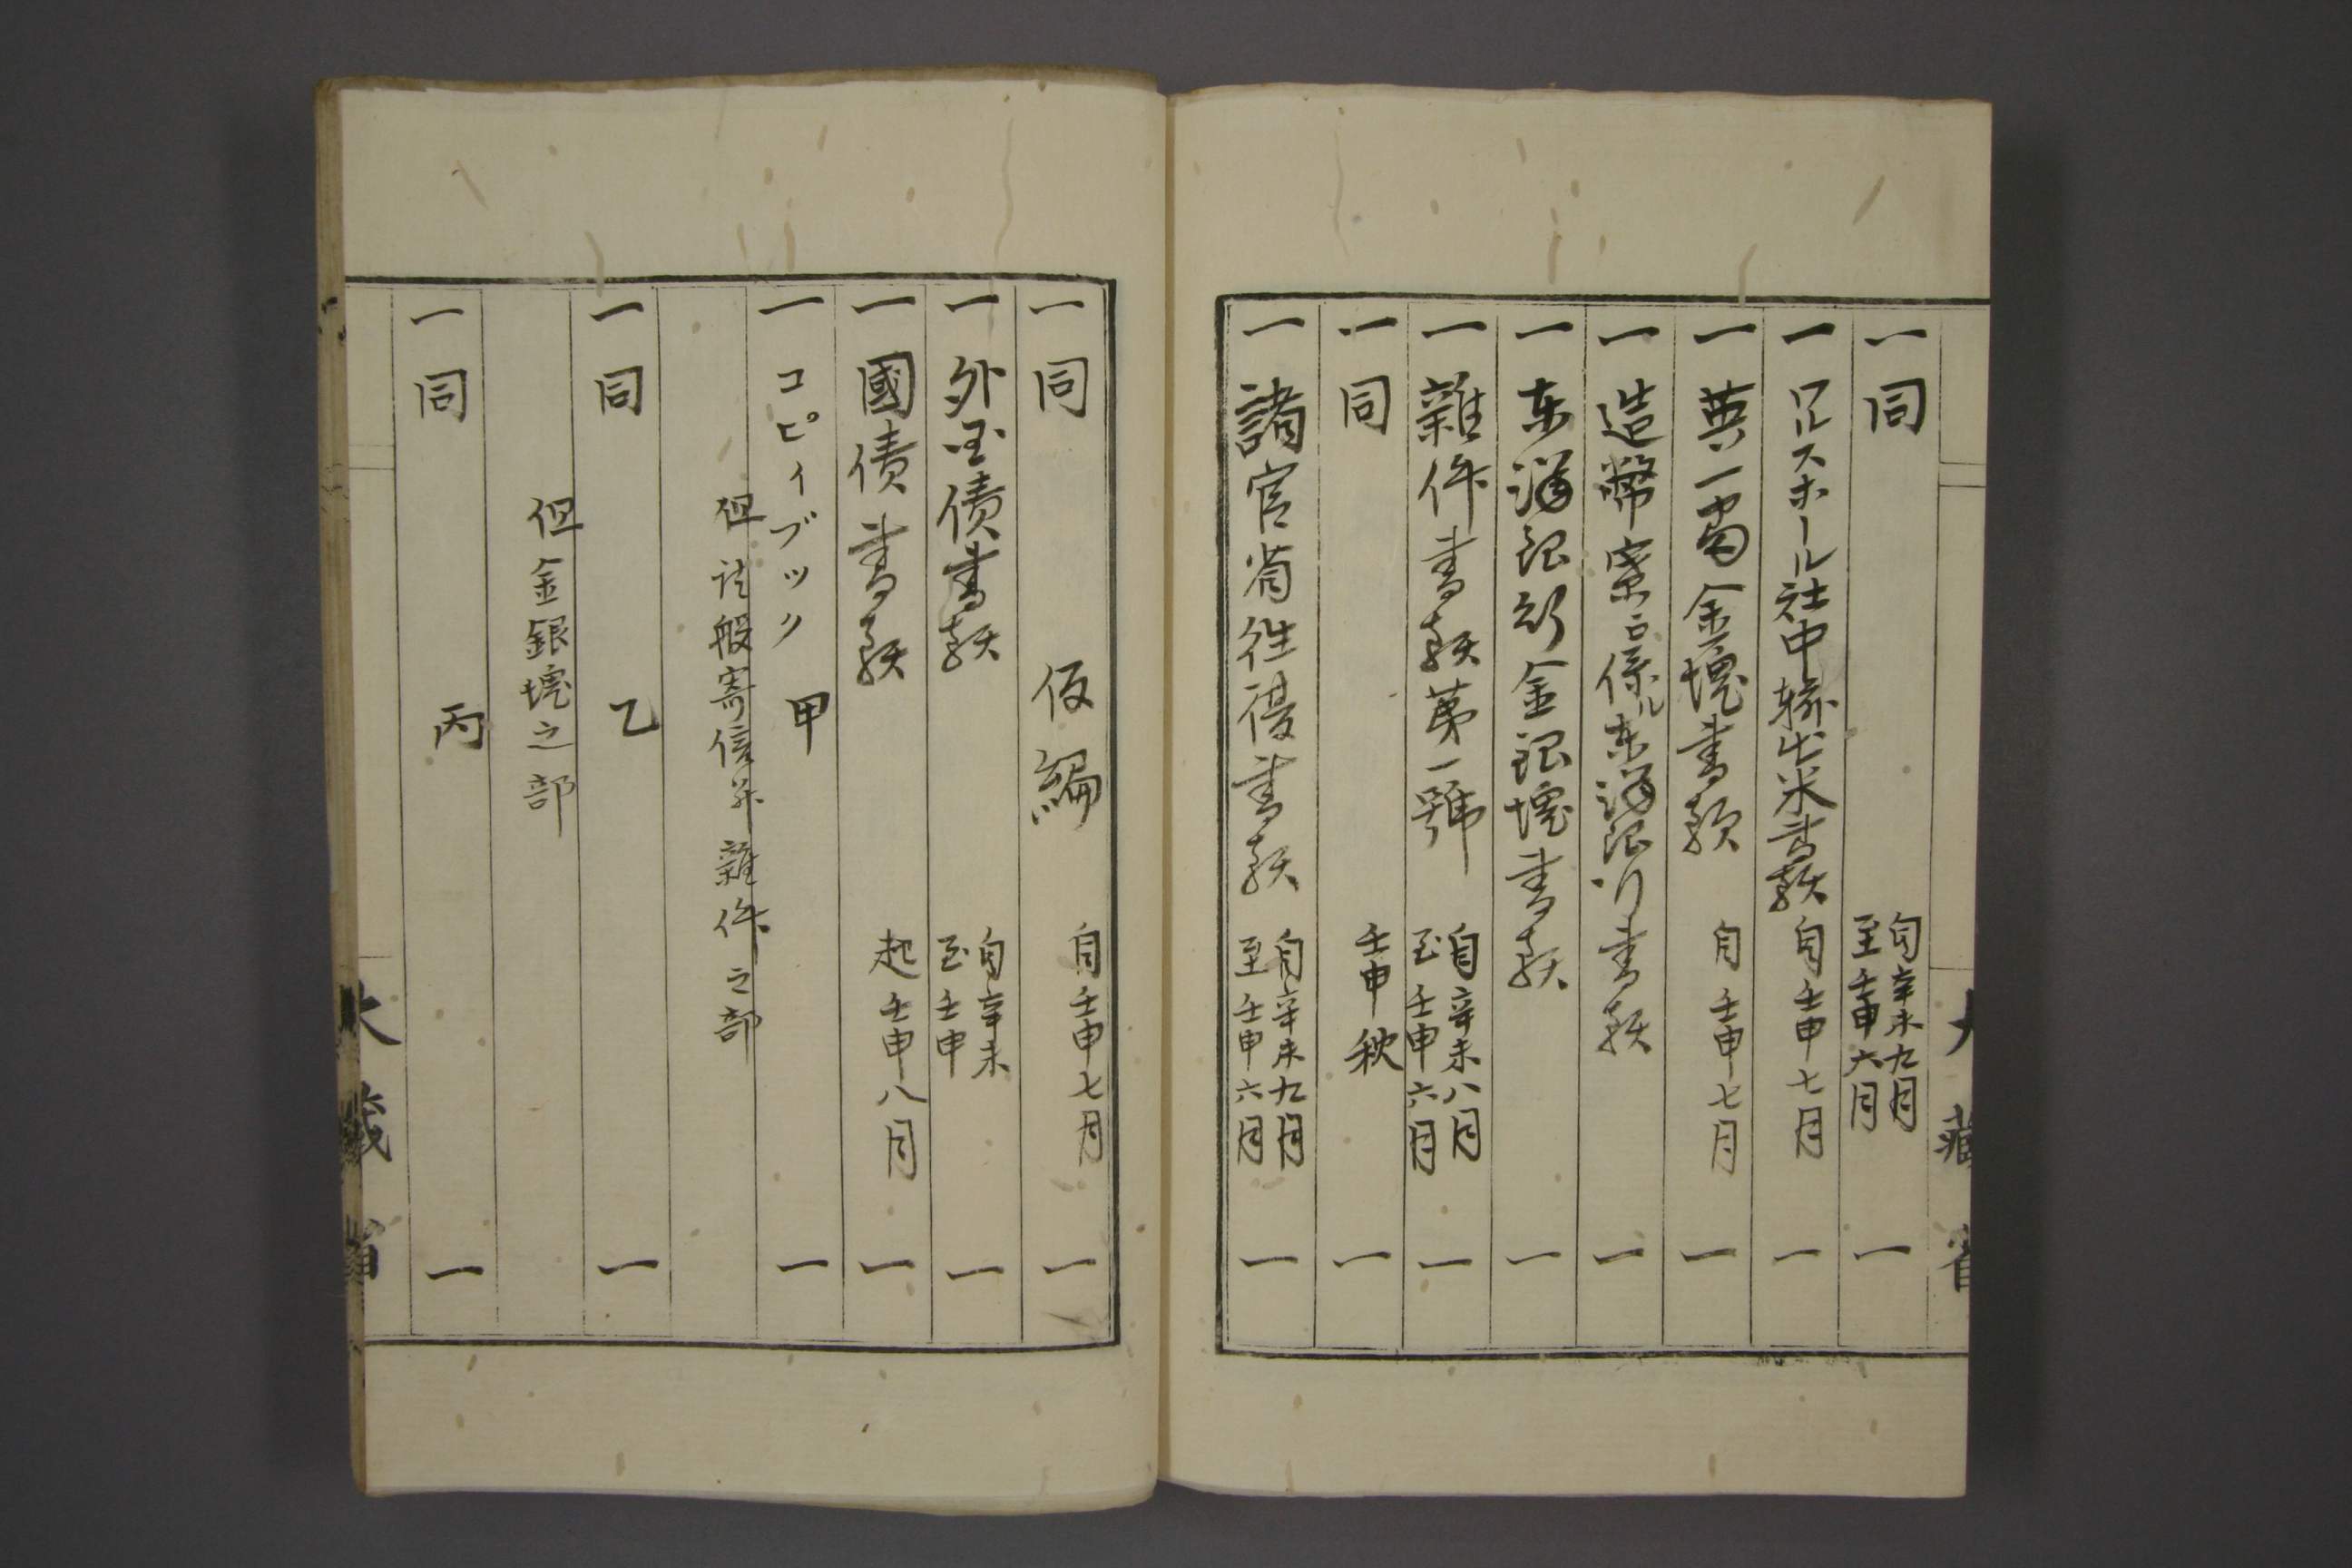 一同 自辛未九月 至壬申六月 一
一ワルスホール社中輸出米書類 自壬申七月 一
一英一番金塊書類 自壬申七月 一
一造幣寮ニ係ル東洋銀行書類 一
一東洋銀行金銀塊書類 一
一雑件書類第一號 自辛未八月 至壬申六月 一
一同 壬申秋 一
一諸官省往復書類 自辛未九月 至壬申六月 一
大藏省
一同 仮編 自壬申七月 一
一外国債書類 自辛未 至壬申 一
一國債書類 起壬申八月 一
一コピィブック 甲 一
但諸般寄信并雑件之部
一同 乙 一
但金銀塊之部
一同 丙 一
大藏省